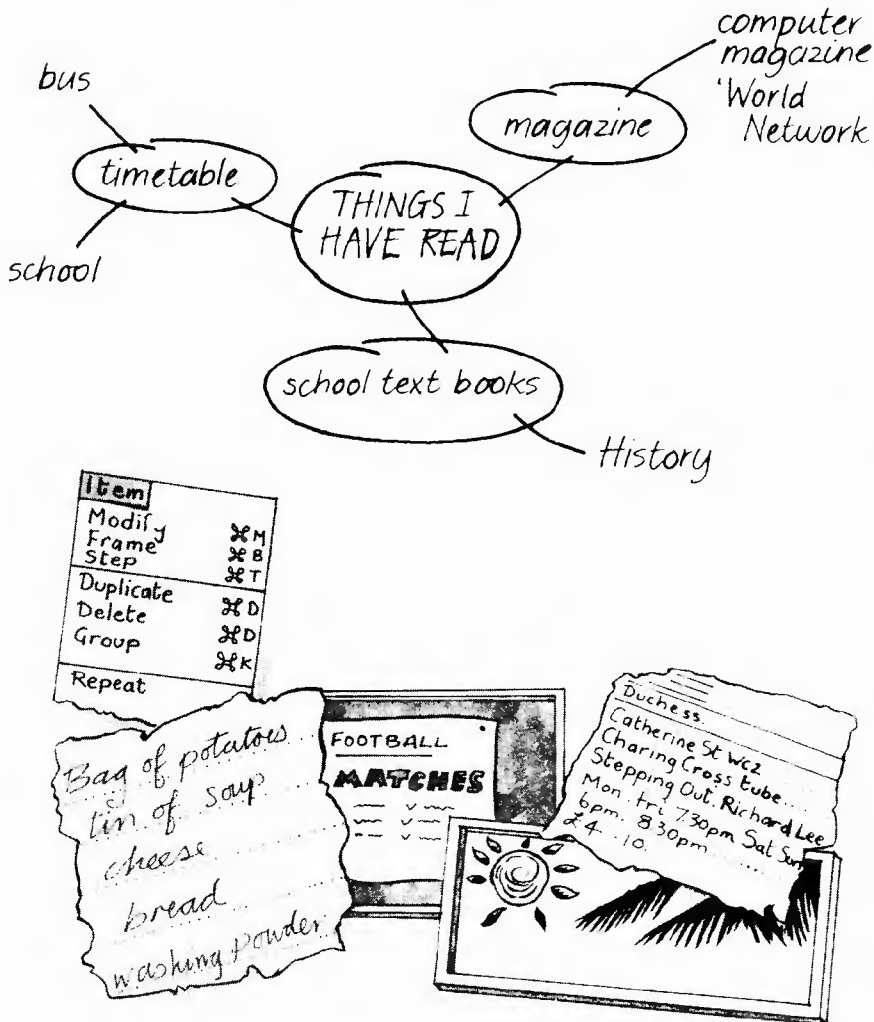 computer
magazine
'World
Network
bus
magazine
timetable
THINGS I
HAVE READ
school
school text books
History
Item
Modify ⌘M
Frame ⌘B
Step ⌘T
Duplicate ⌘D
Delete ⌘D
Group ⌘K
Repeat
Bag of potatoes
tin of soup
cheese
bread
washing powder
FOOTBALL
MATCHES
Duchess
Catherine St WC2
Charing Cross tube
Stepping Out. Richard Lee
Mon. Fri 7.30pm Sat Sun
6pm. 8.30pm
£4 10.